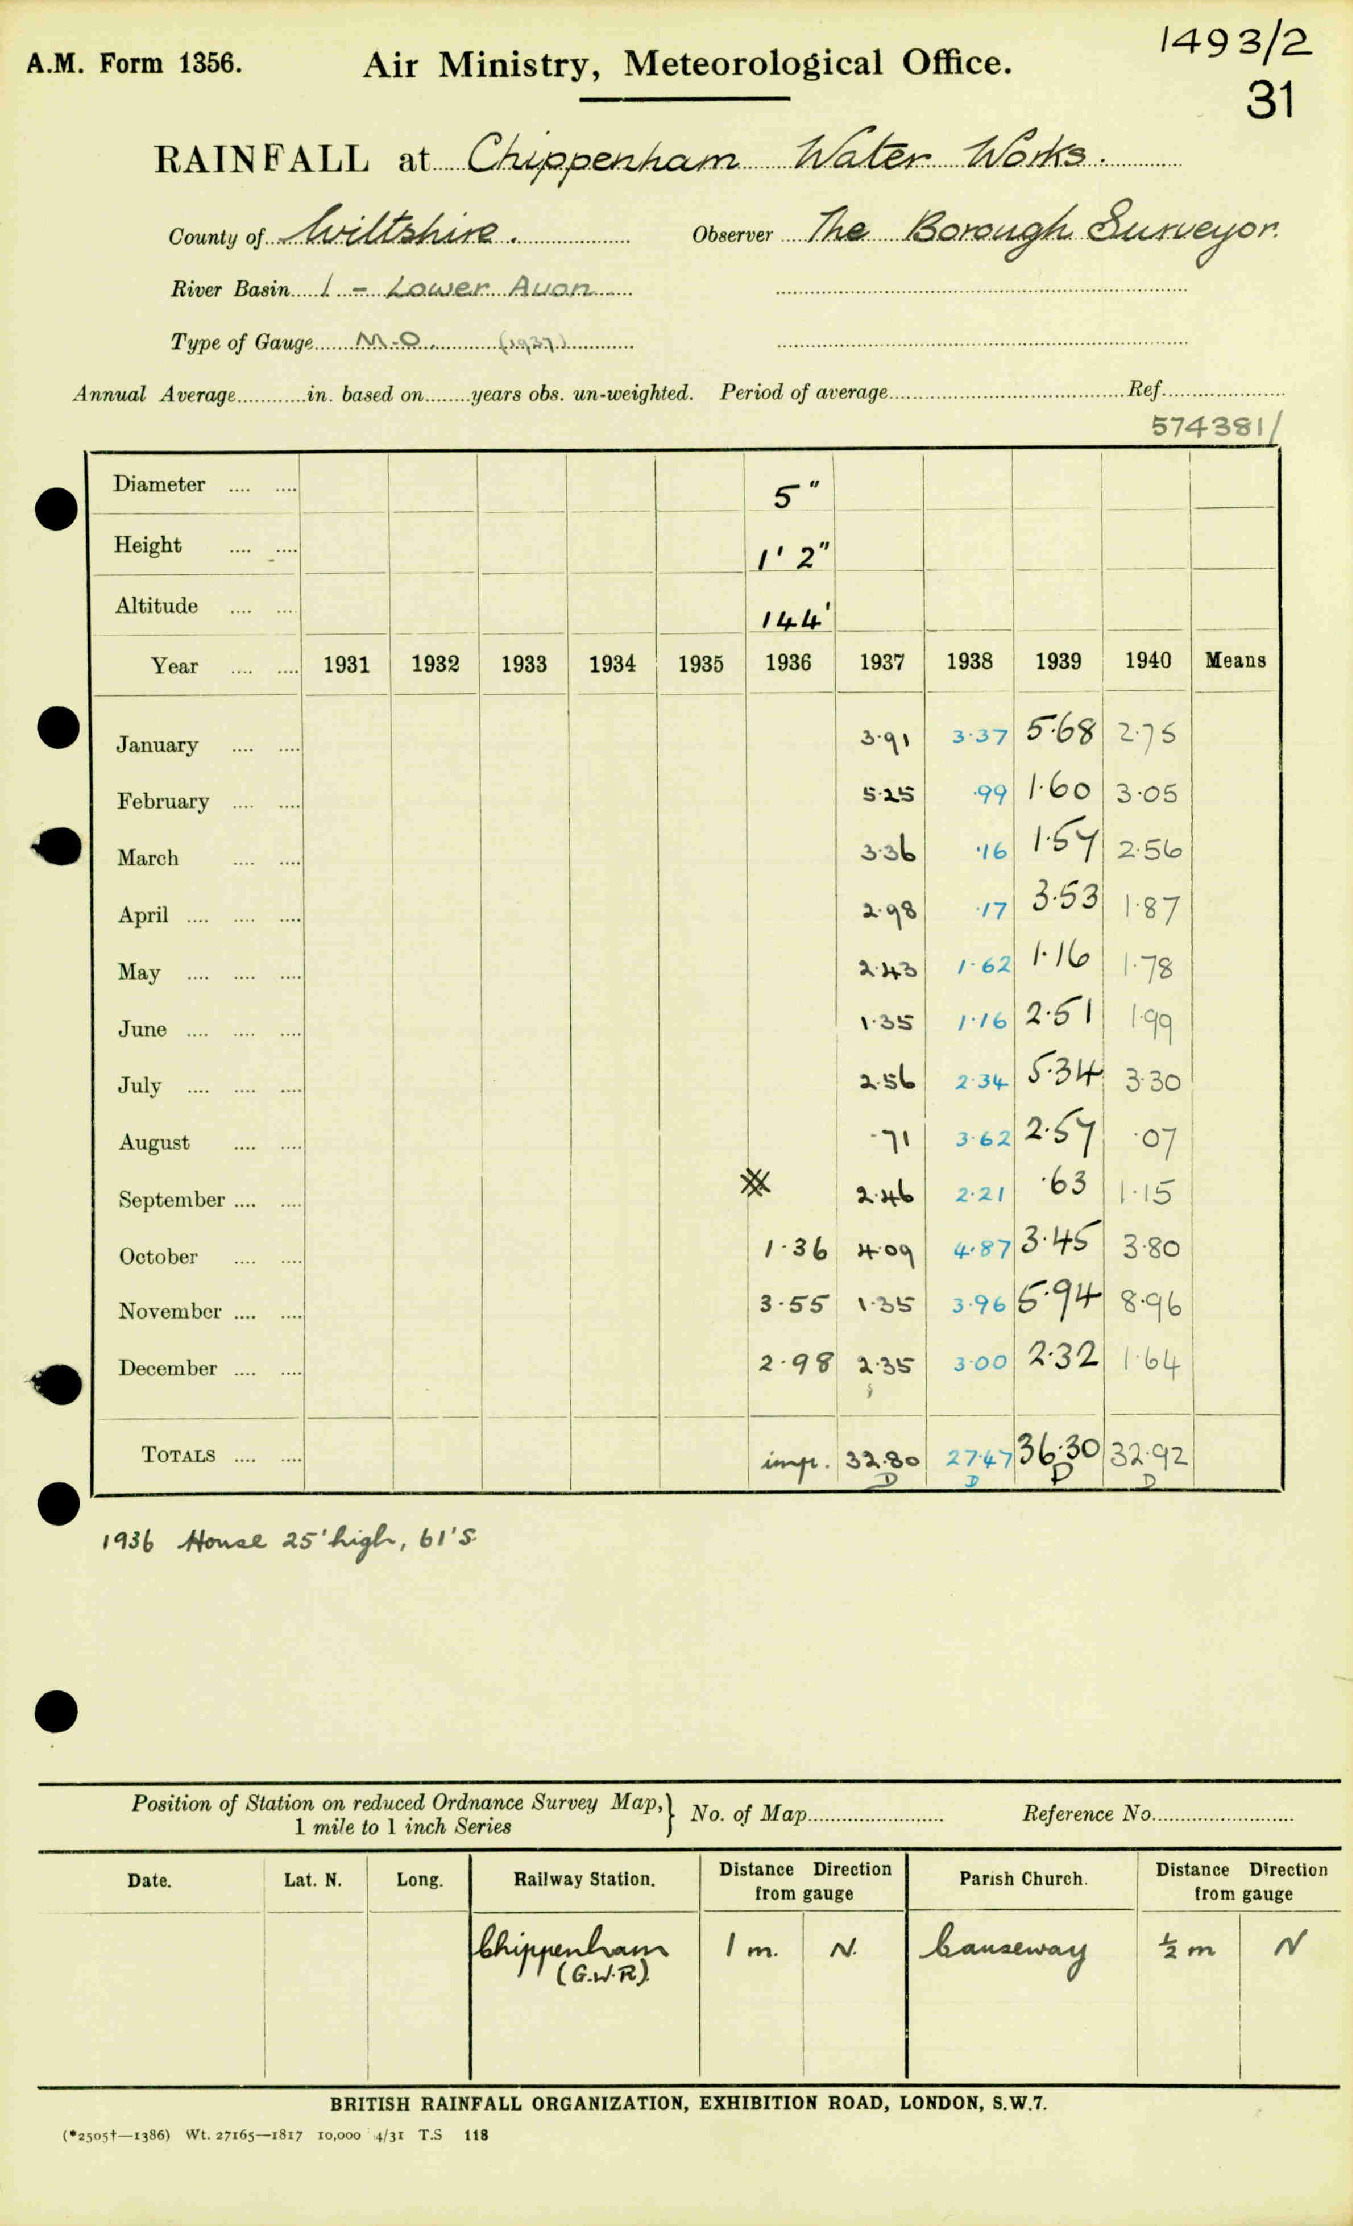 1493/2
A.M. Form 1356. Air Ministry, Meteorological Office.
31
RAINFALL at Chippenham Water Works.
County of Wiltshire. Observer The Borough Surveyor.
River Basin 1 - Lower Avon
Type of Gauge M.O. (1937)
Annual Average............in. based on........years obs. un-weighted. Period of average.......... Ref..........
574381/
Diameter .... .... 5"
Height .... .... 1' 2"
Altitude .... .... 144'
Year .... .... 1931 1932 1933 1934 1935 1936 1937 1938 1939 1940 Means
January .... .... 3.91 3.37 5.68 2.75
February .... .... 5.25 .99 1.60 3.05
March .... .... 3.36 .16 1.57 2.56
April .... .... .... 2.98 .17 3.53 1.87
May .... .... .... 2.43 1.62 1.16 1.78
June .... .... .... 1.35 1.16 2.51 1.99
July .... .... .... 2.56 2.34 5.34 3.30
August .... .... .71 3.62 2.57 .07
September .... .... 2.46 2.21 .63 1.15
October .... .... 1.36 4.09 4.87 3.45 3.80
November .... .... 3.55 1.35 3.96 5.94 8.96
December .... .... 2.98 2.35 3.00 2.32 1.64
TOTALS .... .... imp. 32.80 27.47 36.30 32.92
D D D D
1936 House 25' high, 61' S
Position of Station on reduced Ordnance Survey Map, } No. of Map.......... Reference No..........
1 mile to 1 inch Series
Date. Lat. N. Long. Railway Station. Distance Direction from gauge Parish Church. Distance Direction from gauge
Chippenham 1 m. N. Causeway ½ m N
(G.W.R).
BRITISH RAINFALL ORGANIZATION, EXHIBITION ROAD, LONDON, S.W.7.
(*2505†—1386) Wt. 27165—1817 10,000 4/31 T.S 118